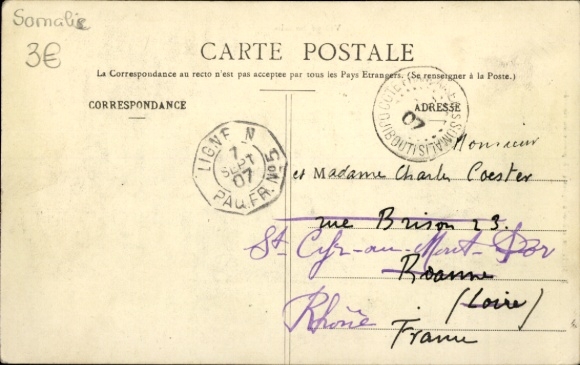 Somalie
3€
CARTE POSTALE
La Correspondance au recto n'est pas acceptée par tous les Pays Etrangers. (Se renseigner à la Poste.)
CORRESPONDANCE
ADRESSE
LIGNE N
7
SEPT
07
PAQ. FR. No 5
07
Monsieur
et Madame Charles Coester
rue Brison 23.
St-Cyr-au-Mont-d'Or
Roanne
(Loire)
Rhône
France